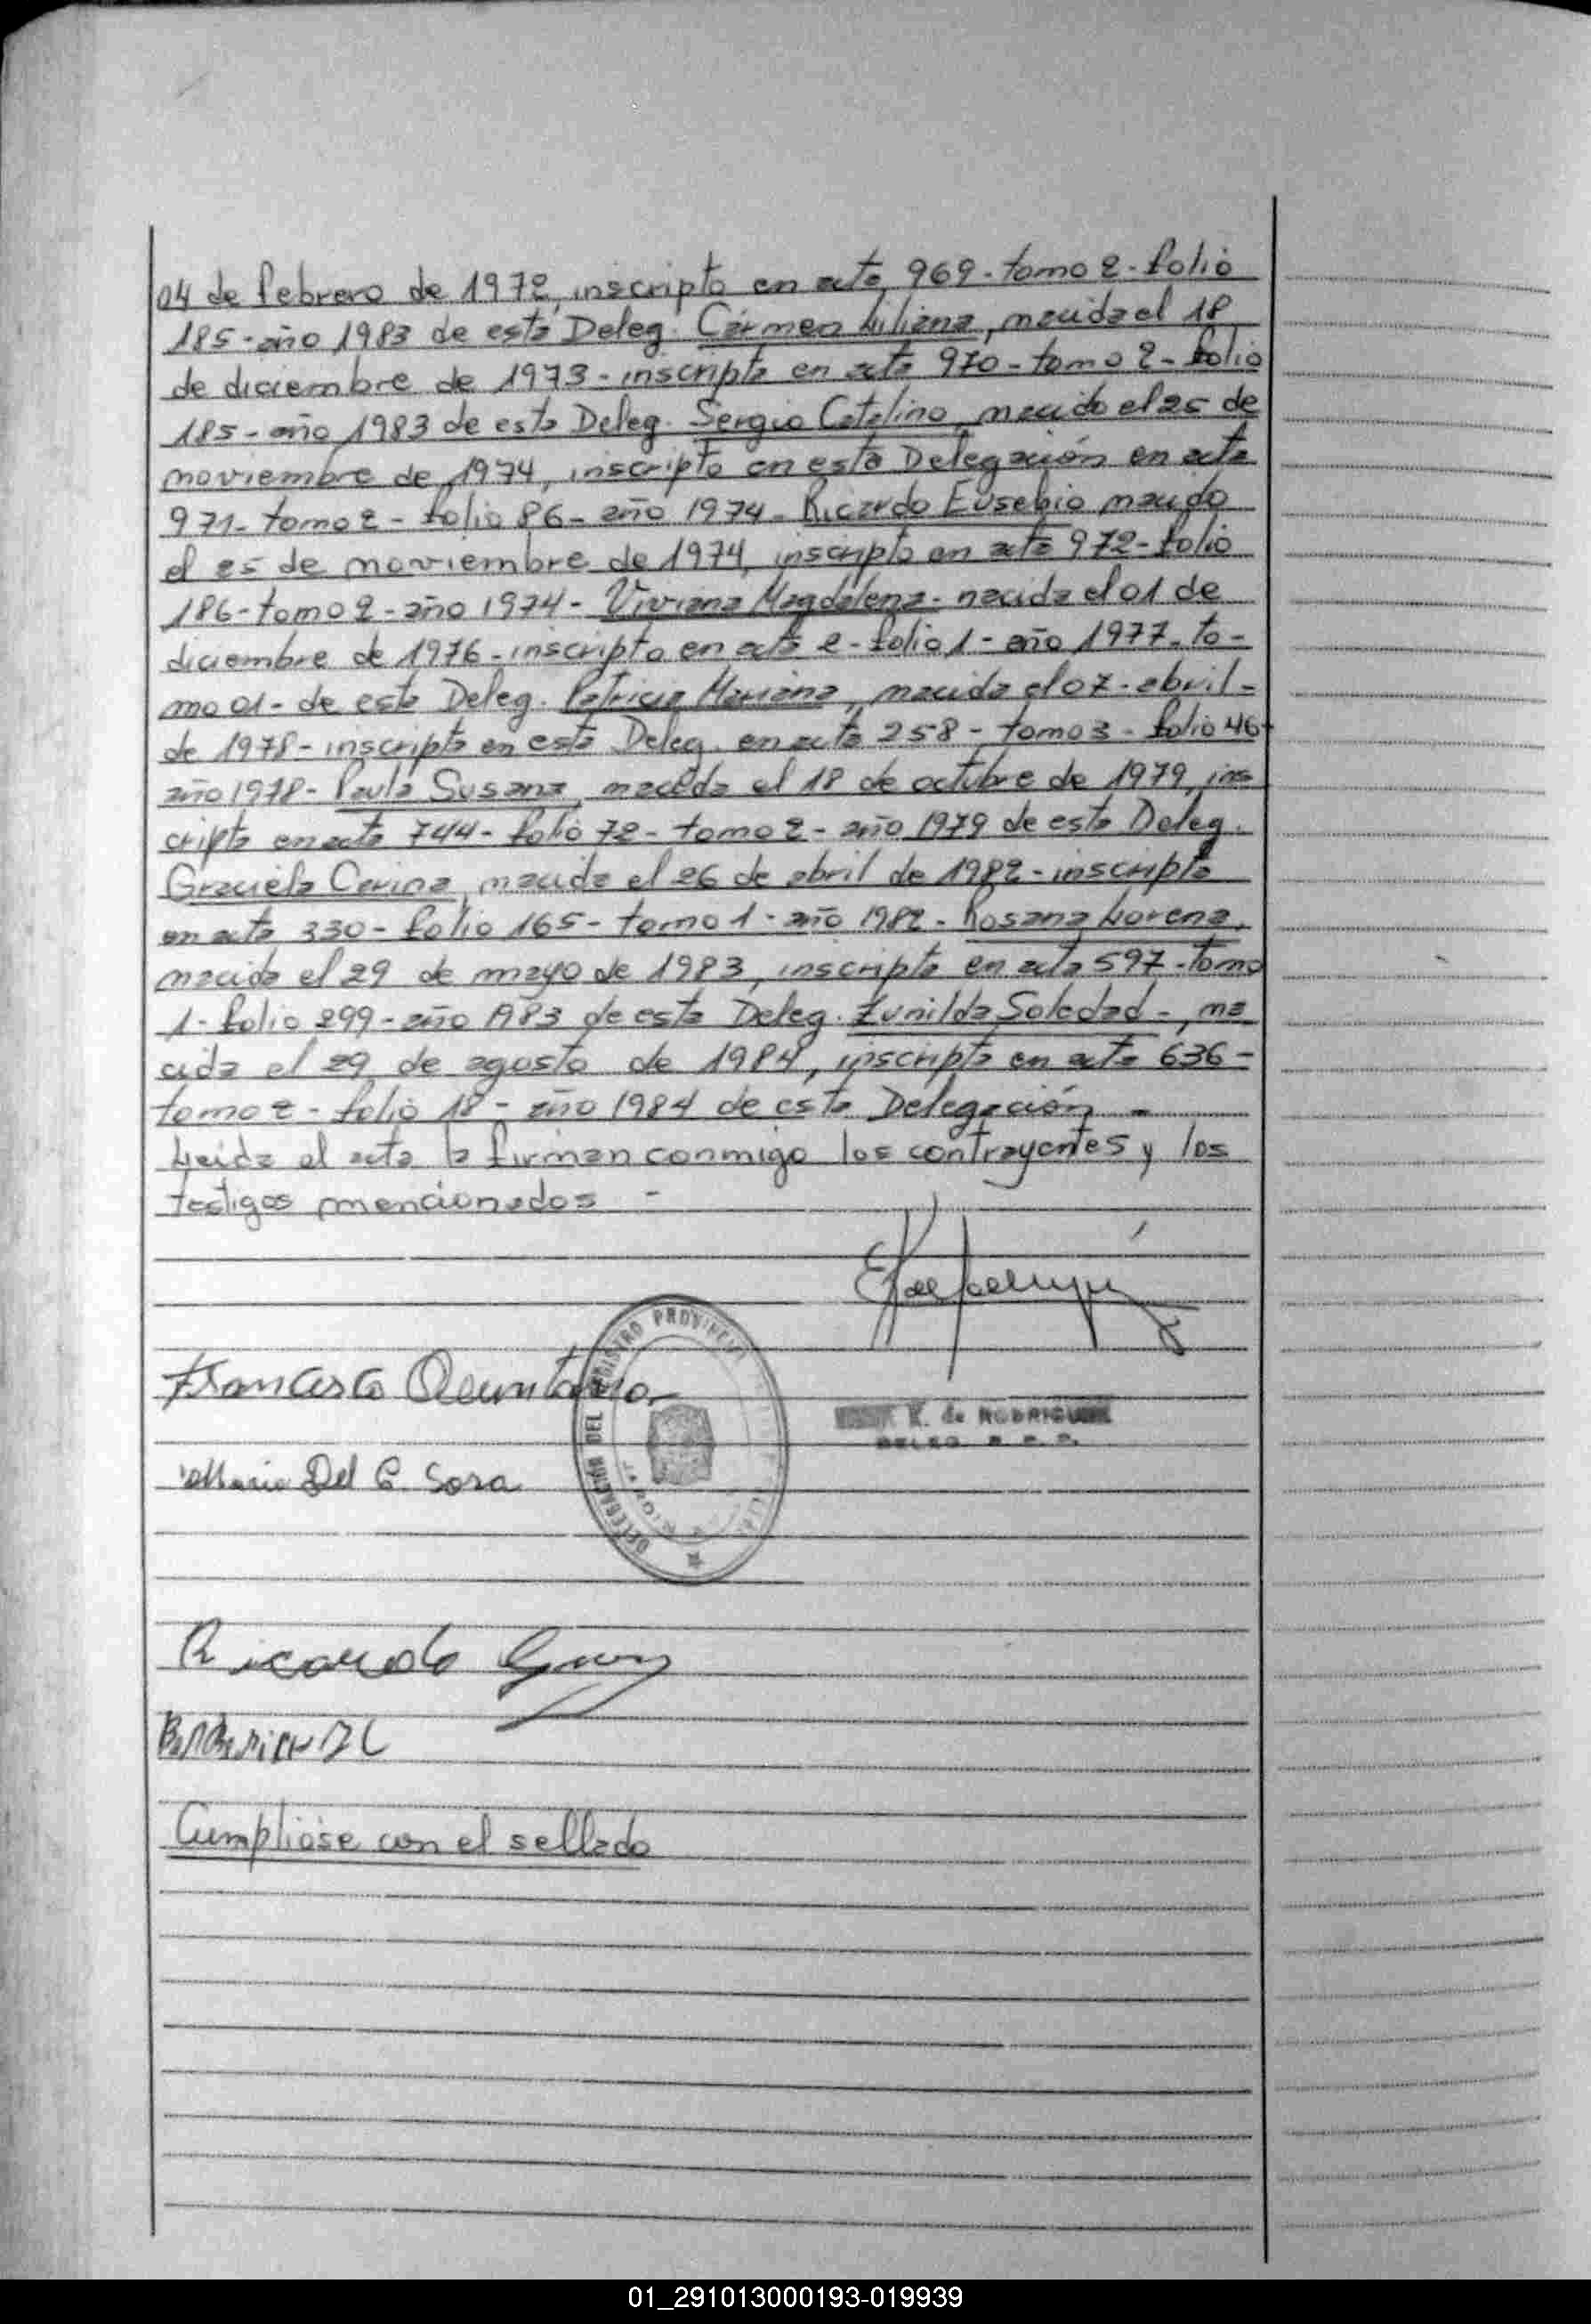 04 de febrero de 1972, inscripto en acta 969 - tomo 2 - folio
185 - año 1983 de esta Deleg. Cármen Liliana, nacida el 18
de diciembre de 1973 - inscripta en acta 970 - tomo 2 - folio
185 - año 1983 de esta Deleg. Sergio Catalino, nacido el 25 de
noviembre de 1974, inscripto en esta Delegación en acta
971 - tomo 2 - folio 86 - año 1974 - Ricardo Eusebio nacido
el 25 de noviembre de 1974, inscripto en acta 972 - folio
186 - tomo 2 - año 1974 - Viviana Magdalena - nacida el 01 de
diciembre de 1976 - inscripta en acta 2 - folio 1 - año 1977 - to-
mo 01 - de esta Deleg. Patricia Mariana, nacida el 07 - abril -
de 1978 - inscripta en esta Deleg. en acta 258 - tomo 3 - folio 46 -
año 1978 - Paula Susana, nacida el 18 de octubre de 1979, ins
cripta en acta 744 - folio 72 - tomo 2 - año 1979 de esta Deleg.
Graciela Carina, nacida el 26 de abril de 1982 - inscripta
en acta 330 - folio 165 - tomo 1 - año 1982 - Rosana Lorena,
nacida el 29 de mayo de 1983, inscripta en acta 597 - tomo
1 - folio 299 - año 1983 de esta Deleg. Zunilda Soledad -, na
cida el 29 de agosto de 1984, inscripta en acta 636 -
tomo 2 - folio 18 - año 1984 de esta Delegación -
Leida el acta la firman conmigo los contrayentes y los
testigos mencionados -
Francisco Quintana
DELEGACIÓN DEL REGISTRO PROVINCIAL
K. de RODRIGUEZ
DELEG. R. P. P.
Maria Del C. Sosa
Ricardo
Cumplióse con el sellado
01_291013000193-019939